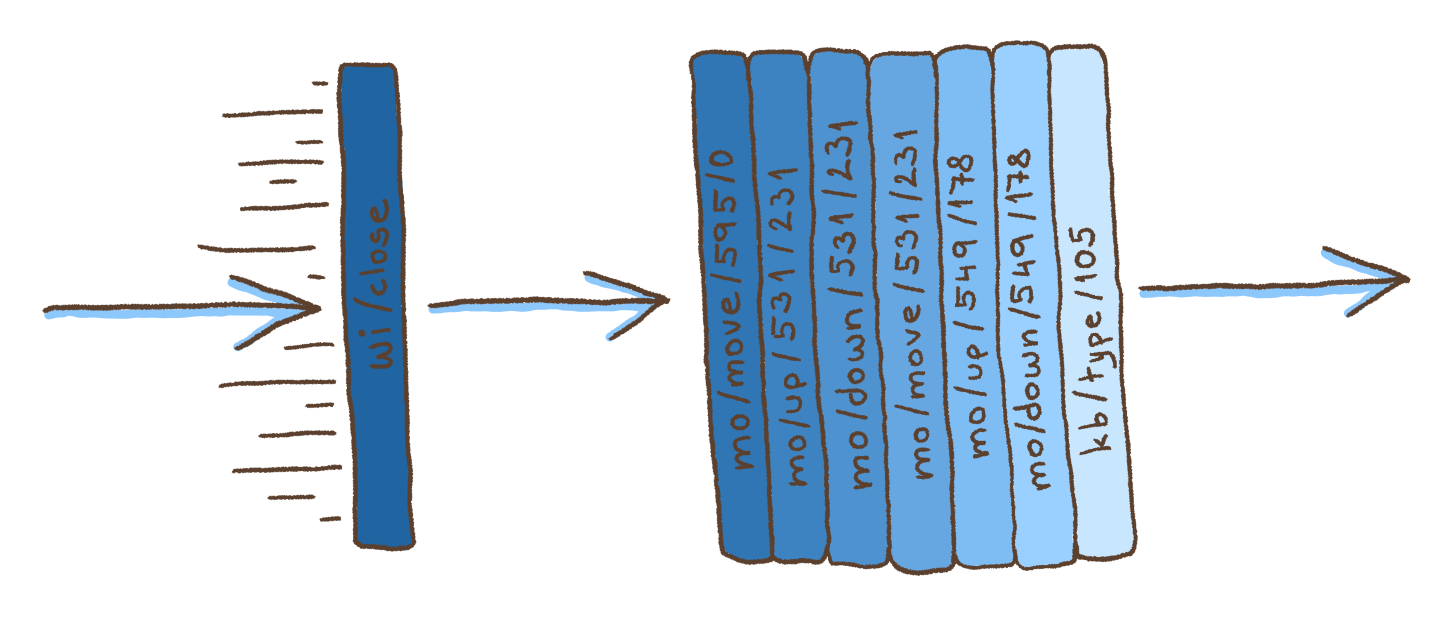 wi/close
mo/move/595/0
mo/up/531/231
mo/down/531/231
mo/move/531/231
mo/up/549/178
mo/down/549/178
kb/type/105